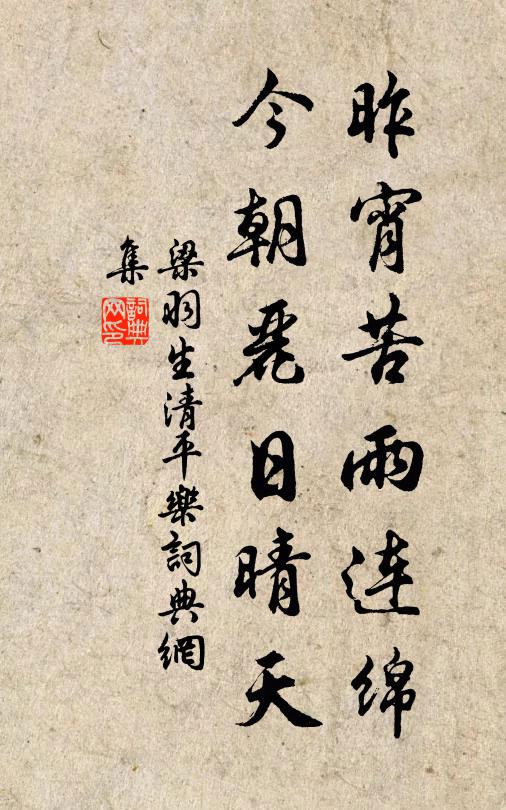 昨宵苦雨连绵
今朝麗日晴天
梁羽生清平樂詞典網
集
詞典網印